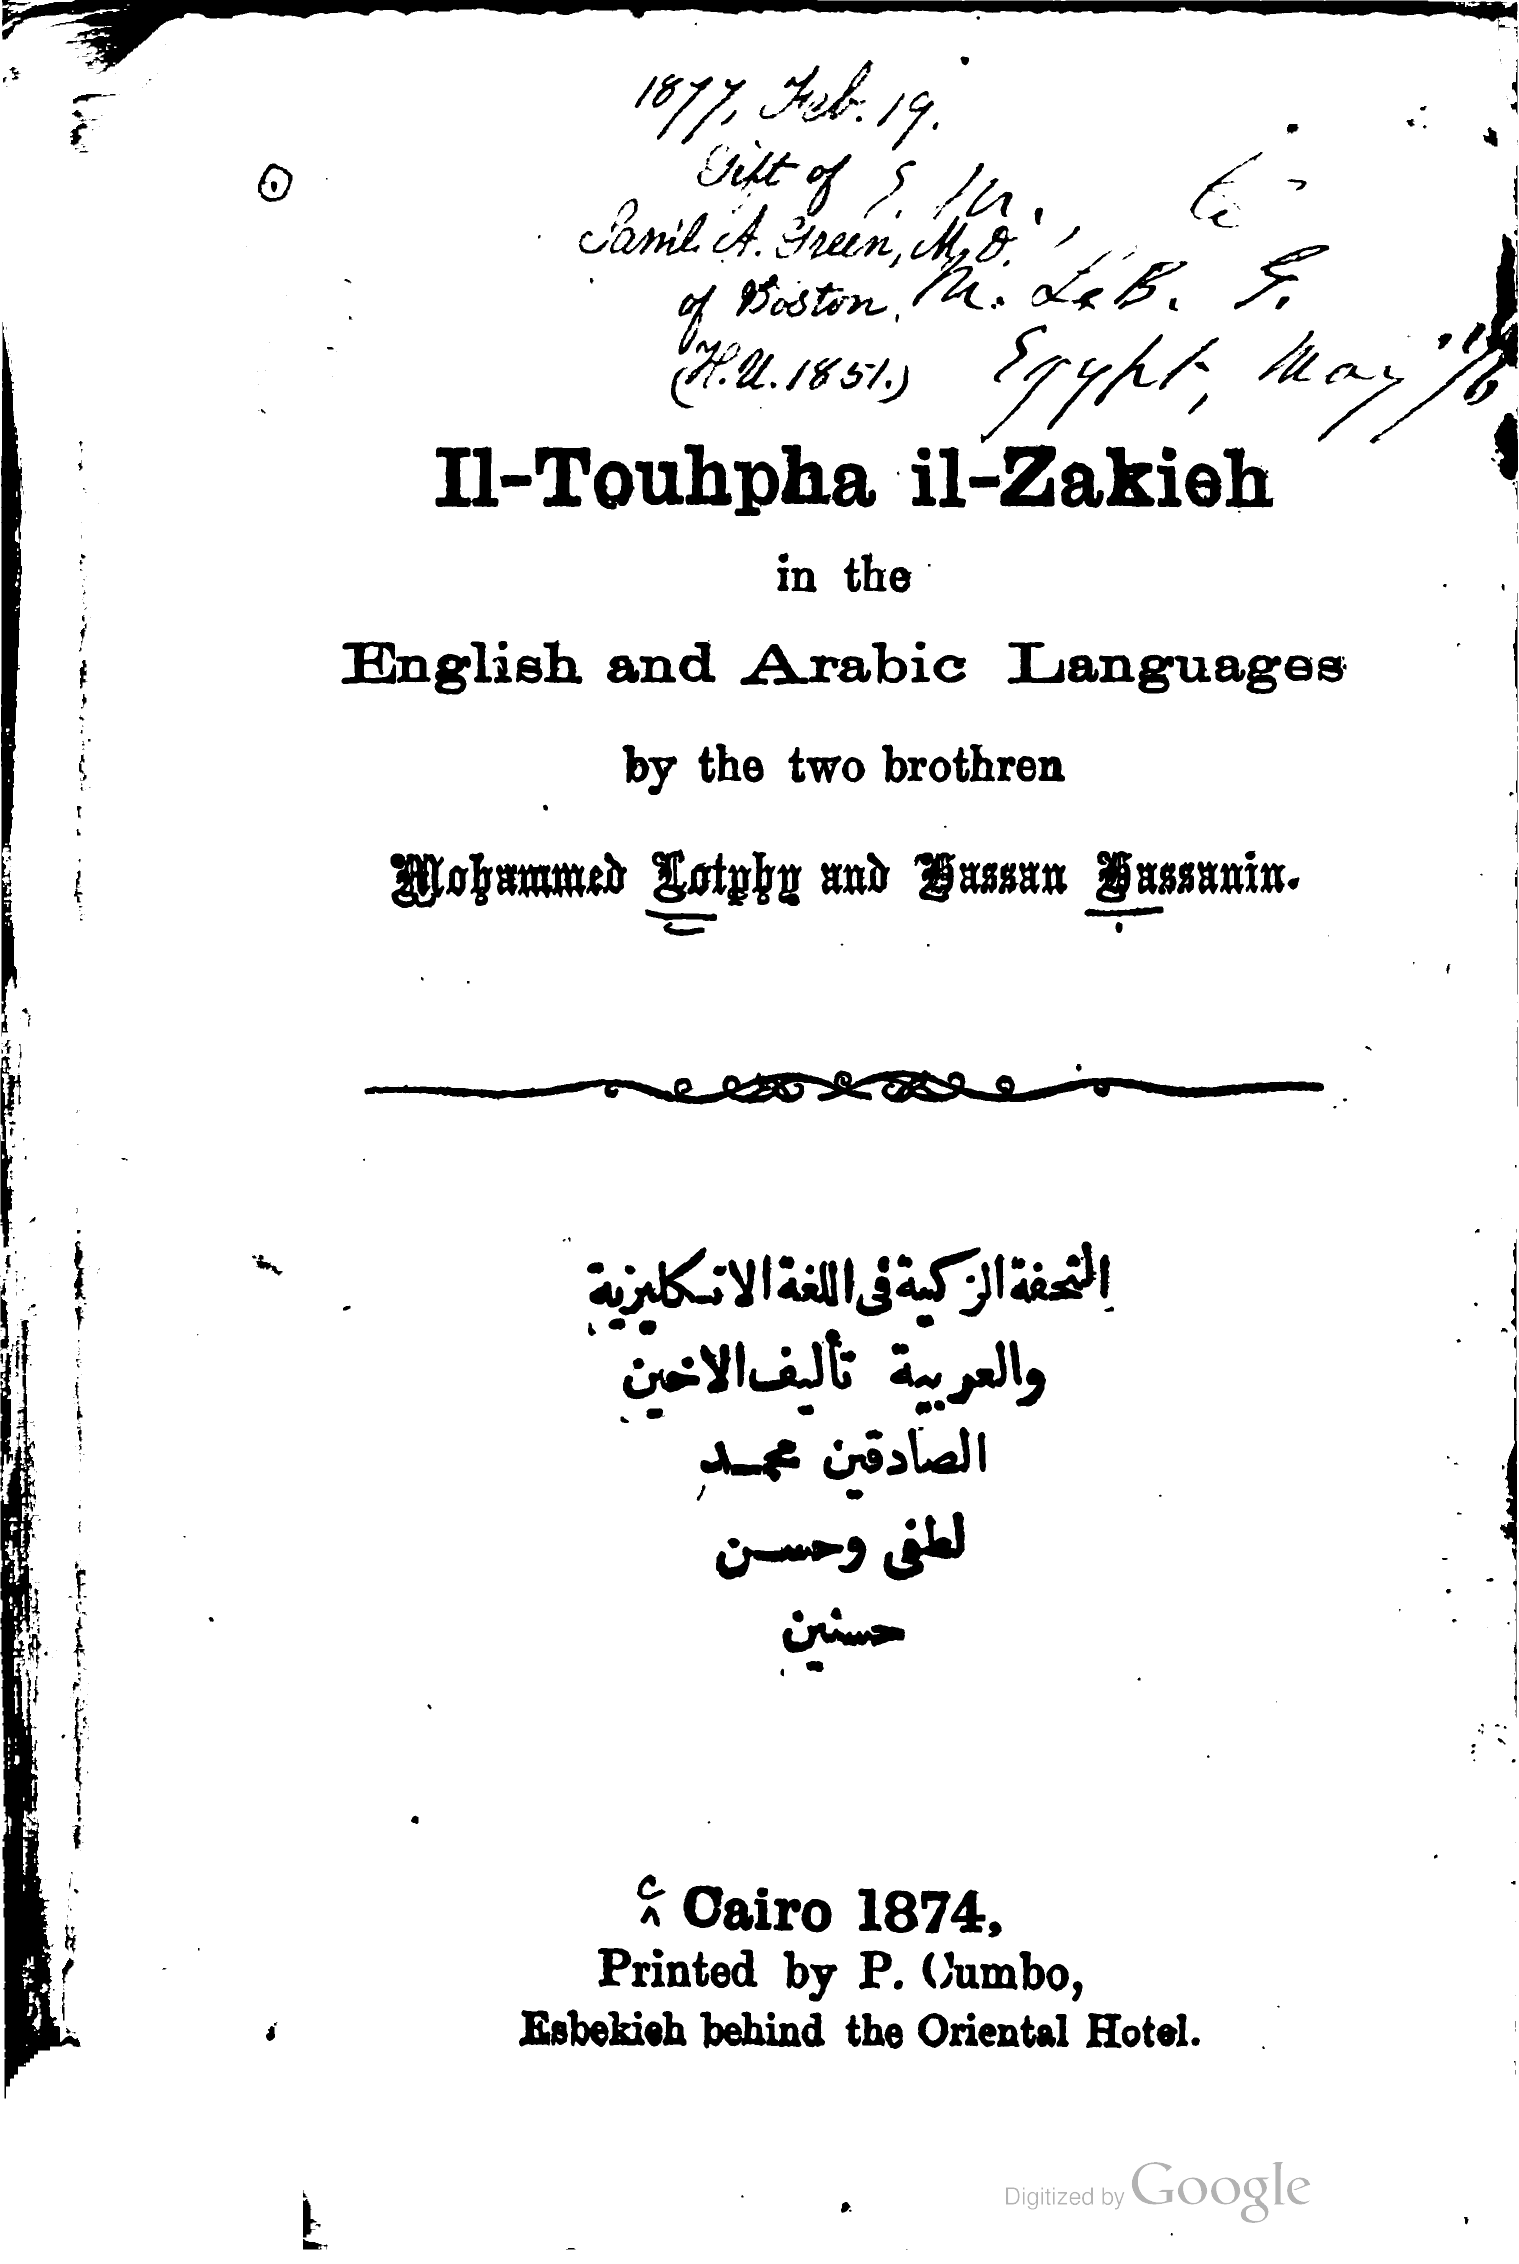 1877, Feb. 19.
Gift of
Sam'l. A. Green, M.D.
of Boston.
(H.U. 1851.)
E. M.
to
M. LeB. G.
Egypt, May '76
Il-Touhpha il-Zakieh
in the
English and Arabic Languages
by the two brothren
Mohammed Lotphy and Hassan Hassanin.
التحفة الزكية فى اللغة الانكليزية
والعربية تأليف الاخين
الصادقين محمد
لطفى وحسن
حسنين
Cairo 1874,
Printed by P. Cumbo,
Esbekieh behind the Oriental Hotel.
Digitized by Google